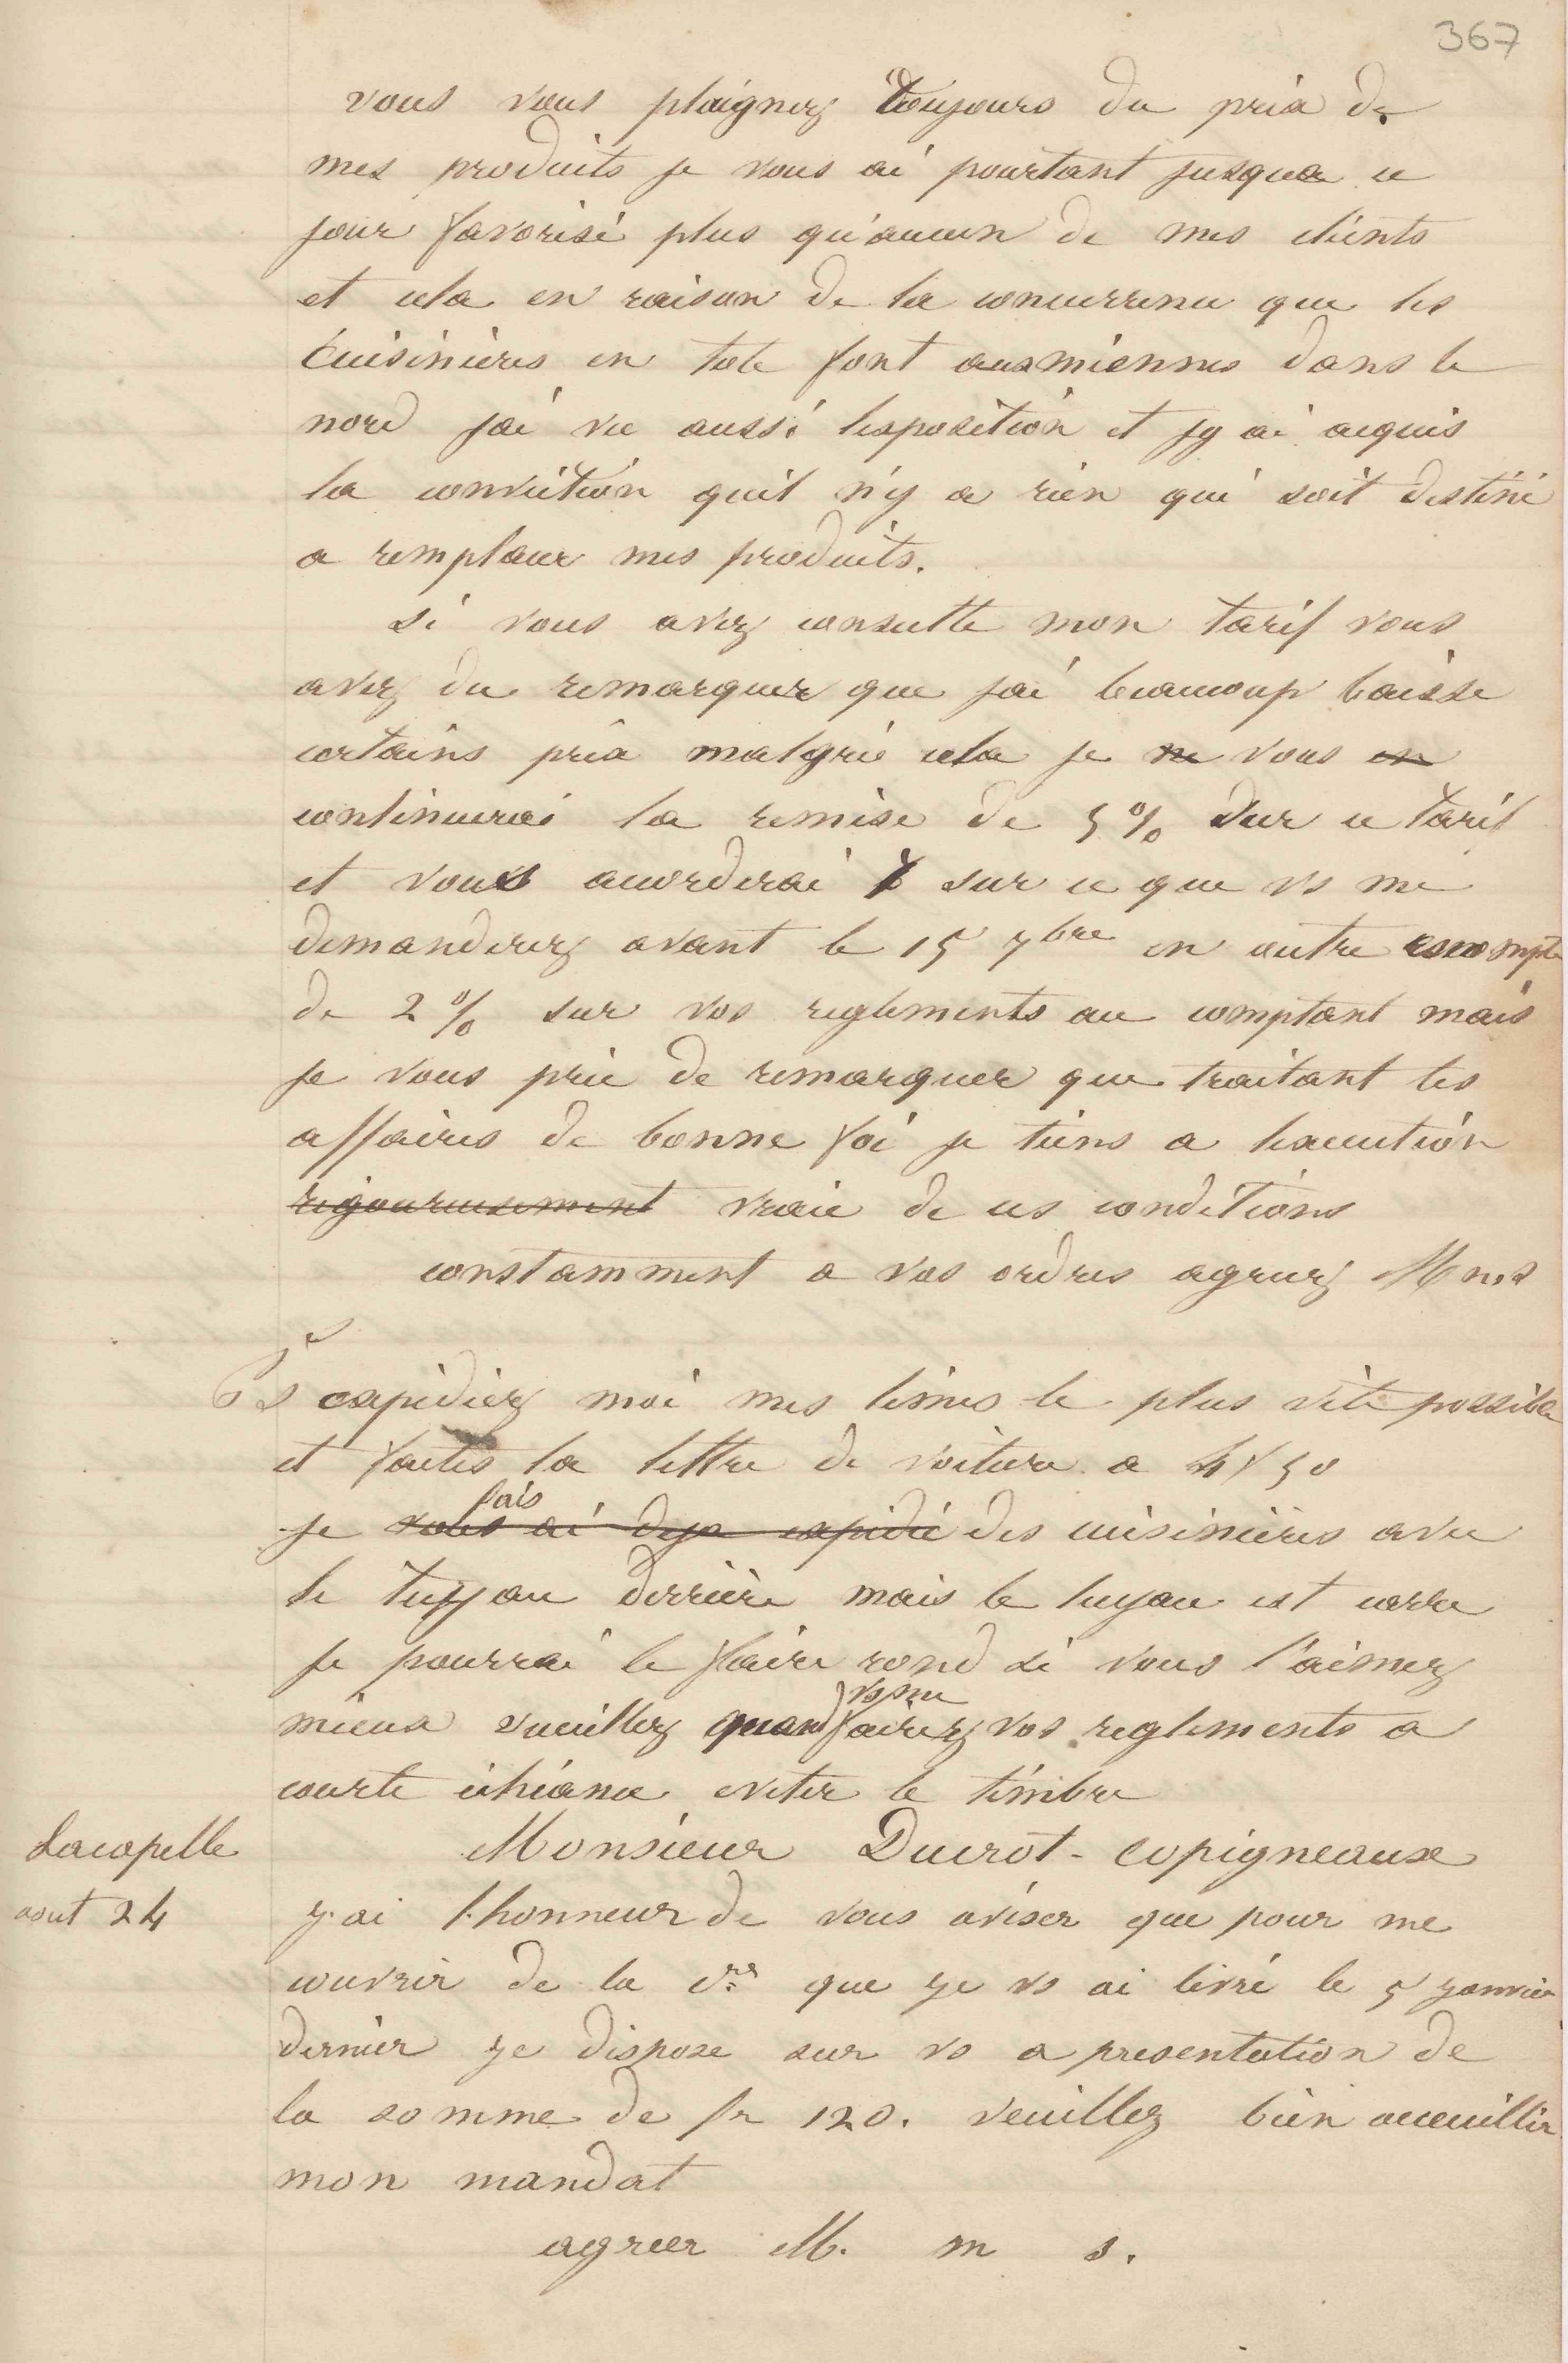 367
vous vous plaignez toujours du prix de
mes produits je vous ai pourtant jusqua ce
jour favorisé plus qu'aucun de mes clients
et cela en raison de la concurrence que les
cuisinières en tole font aux miennes dans le
nord jai vu aussi lexposition et jy ai acquis
la conviction quil n'y a rien qui soit destiné
a remplacer mes produits.
si vous avez consulté mon tarif vous
avez du remarquer que jai beaucoup baissé
certains prix malgré cela je ne vous en
continuerai la remise de 5% sur ce tarif
et vous accorderai sur ce que vs me
demanderez avant le 15 7bre en outre escompte
de 2% sur vos reglements au comptant mais
je vous prie de remarquer que traitant les
affaires de bonne foi je tiens a lexecution
rigoureusement vraie de ces conditions
constamment a vos ordres agreez M mes
Ps expediez moi mes limes le plus vite possible
et faites la lettre de voiture a 4f50
fais
je vous ai deja expedié des cuisinières avec
le tuyau derrière mais le tuyau est carre
je pourrai le faire rond si vous l'aimez
vs me
mieux veuillez quand fairez vos reglements a
courte echéance eviter le timbre
Lacapelle
aout 24
Monsieur Ducrot-Copigneaux
j.ai l.honneur de vous aviser que pour me
couvrir de la cre que je vs ai livré le 5 janvier
dernier je dispose sur vs a presentation de
la somme de fr 120. veuillez bien acceuillir
mon mandat
agreer M. m s.